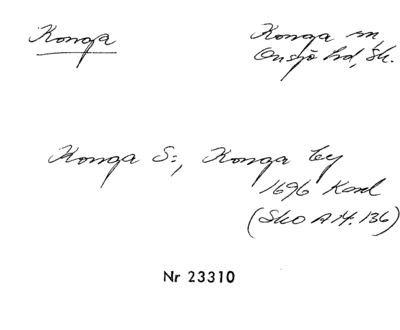 Konga
Konga sn,
Onsjö hd, Sk.
Konga S:, Konga by
1696 Kard
(Sko A H. 136)
Nr 23310